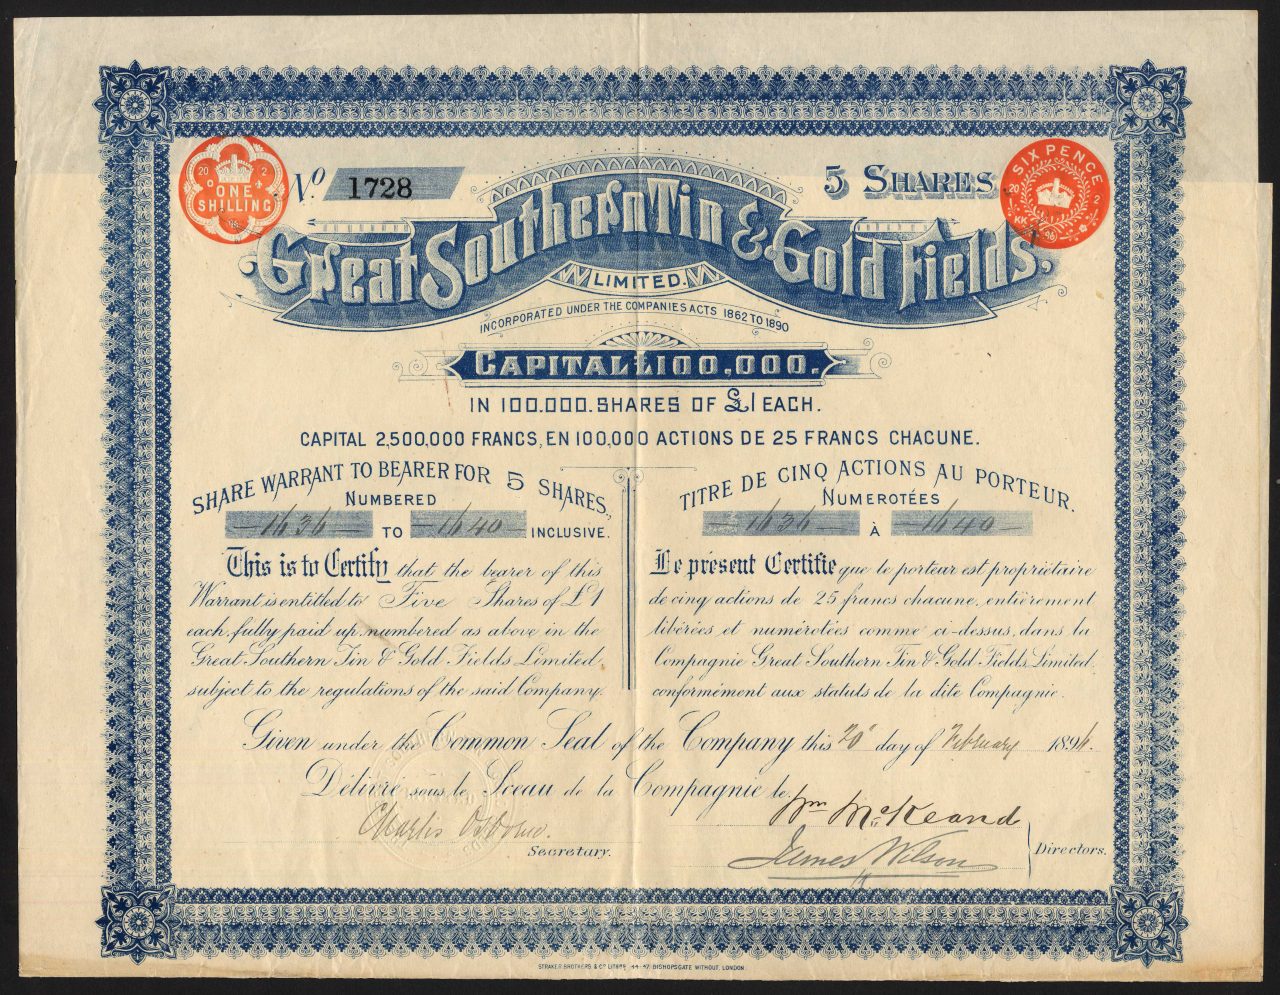 20 2
ONE
SHILLING
No 1728
5 SHARES
SIX PENCE
20 2
KK
96
Great Southern Tin & Gold Fields.
LIMITED.
INCORPORATED UNDER THE COMPANIES ACTS 1862 TO 1890
CAPITAL £100,000.
IN 100.000. SHARES OF £1 EACH.
CAPITAL 2,500,000 FRANCS, EN 100,000 ACTIONS DE 25 FRANCS CHACUNE.
SHARE WARRANT TO BEARER FOR 5 SHARES,
NUMBERED
1636 TO 1640 INCLUSIVE.
This is to Certify that the bearer of this
Warrant is entitled to Five Shares of £1
each, fully paid up, numbered as above in the
Great Southern Tin & Gold Fields Limited,
subject to the regulations of the said Company.
TITRE DE CINQ ACTIONS AU PORTEUR.
NUMEROTÉES
1636 À 1640
Le présent Certifie que le porteur est propriétaire
de cinq actions de 25 francs chacune, entièrement
libérées et numérotées comme ci-dessus, dans la
Compagnie Great Southern Tin & Gold Fields, Limited.
conformément aux statuts de la dite Compagnie.
Given under the Common Seal of the Company this 20 day of February 1896.
Délivré sous le Sceau de la Compagnie le
Wm McKeand
Charles Osborne.
Secretary.
James Wilson
Directors.
STRAKER BROTHERS & CO LITHRS 44-47 BISHOPSGATE WITHOUT, LONDON